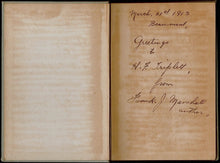 March, 21st 1913
Beaumont,
Greetings
to
H. E. Triplett,
from
Frank J. Marshall
author.